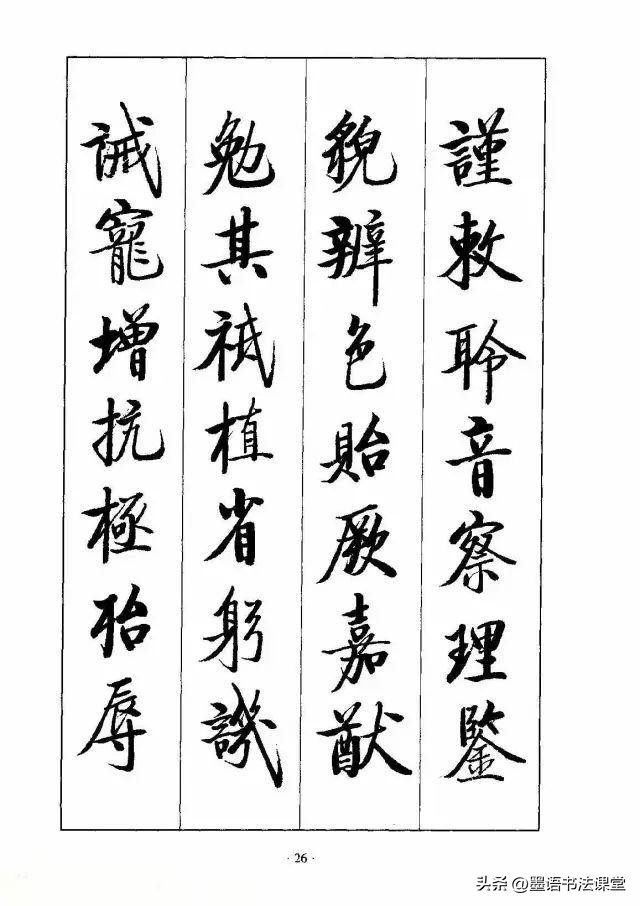 謹敕聆音察理鑒
貌辨色貽厥嘉猷
勉其祗植省躬譏
誡寵增抗極殆辱
· 26 ·
头条 @墨语书法课堂